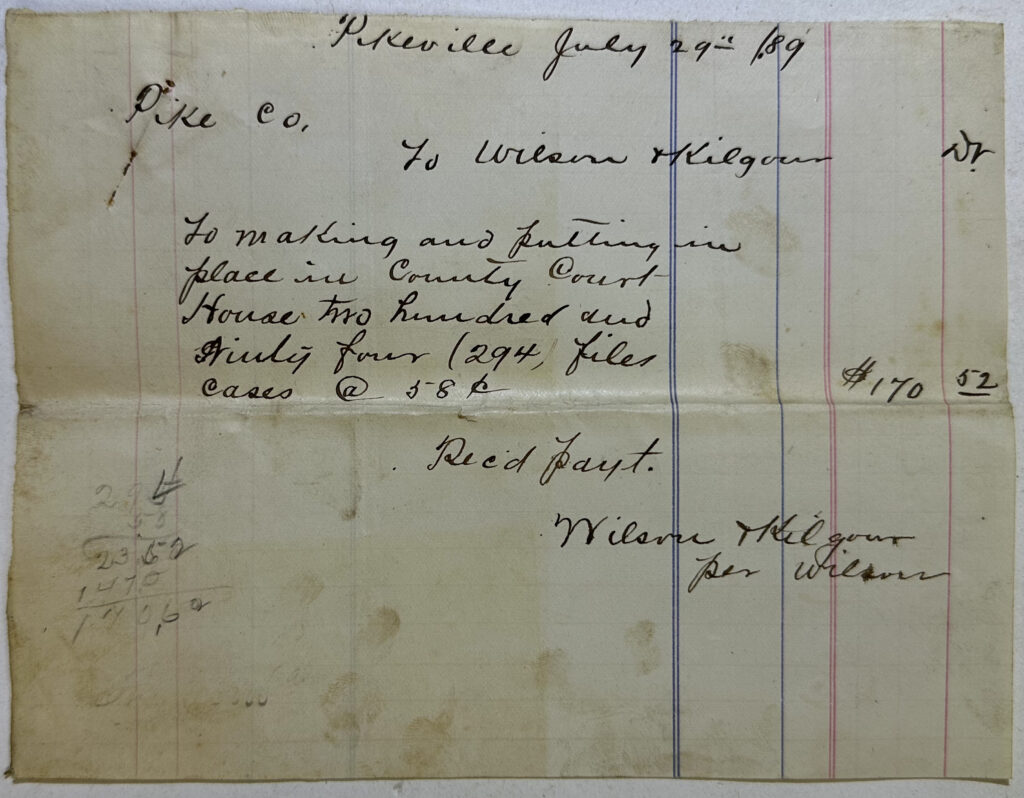 Pikeville July 29" /89
Pike Co.
To Wilson & Kilgour Dr
To making and putting in
place in County Court
House two hundred and
Ninty four (294) files
cases @ 58 ¢ $170 52
Rec'd payt.
Wilson & Kilgour
per Wilson
294
58
2352
1470